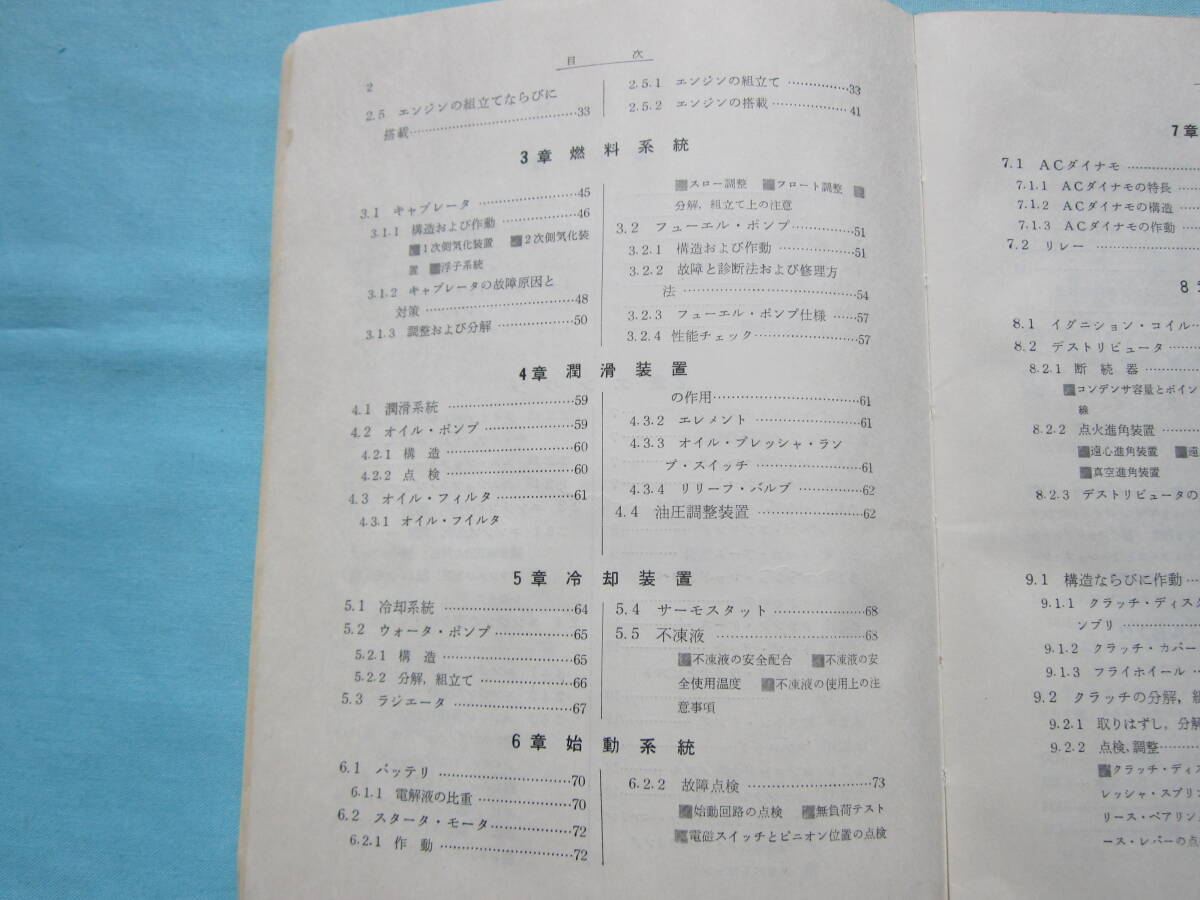 目　次
2
2.5 エンジンの組立てならびに
搭載……33
2.5.1 エンジンの組立て……33
2.5.2 エンジンの搭載……41
3章 燃料系統
3.1 キャブレータ……45
3.1.1 構造および作動……46
1次側気化装置 2次側気化装
置 浮子系統
3.1.2 キャブレータの故障原因と
対策……48
3.1.3 調整および分解……50
スロー調整 フロート調整
分解，組立て上の注意
3.2 フューエル・ポンプ……51
3.2.1 構造および作動……51
3.2.2 故障と診断法および修理方
法……54
3.2.3 フューエル・ポンプ仕様……57
3.2.4 性能チェック……57
4章 潤滑装置
4.1 潤滑系統……59
4.2 オイル・ポンプ……59
4.2.1 構造……60
4.2.2 点検……60
4.3 オイル・フィルタ……61
4.3.1 オイル・フイルタ
の作用……61
4.3.2 エレメント……61
4.3.3 オイル・プレッシャ・ラン
プ・スイッチ……61
4.3.4 リリーフ・バルブ……62
4.4 油圧調整装置……62
5章 冷却装置
5.1 冷却系統……64
5.2 ウォータ・ポンプ……65
5.2.1 構造……65
5.2.2 分解，組立て……66
5.3 ラジエータ……67
5.4 サーモスタット……68
5.5 不凍液……68
不凍液の安全配合 不凍液の安
全使用温度 不凍液の使用上の注
意事項
6章 始動系統
6.1 バッテリ……70
6.1.1 電解液の比重……70
6.2 スタータ・モータ……72
6.2.1 作動……72
6.2.2 故障点検……73
始動回路の点検 無負荷テスト
電磁スイッチとピニオン位置の点検
7章
7.1 ACダイナモ……
7.1.1 ACダイナモの特長
7.1.2 ACダイナモの構造
7.1.3 ACダイナモの作動
7.2 リレー……
8
8.1 イグニション・コイル…
8.2 デストリビュータ……
8.2.1 断続器……
コンデンサ容量とポイン
線
8.2.2 点火進角装置……
遠心進角装置
真空進角装置
8.2.3 デストリビュータの
9.1 構造ならびに作動…
9.1.1 クラッチ・ディス
ンブリ……
9.1.2 クラッチ・カバー
9.1.3 フライホイール…
9.2 クラッチの分解，
9.2.1 取りはずし，分解
9.2.2 点検，調整……
クラッチ・ディス
レッシャ・スプリン
リース・ベアリン
ース・レバーの点